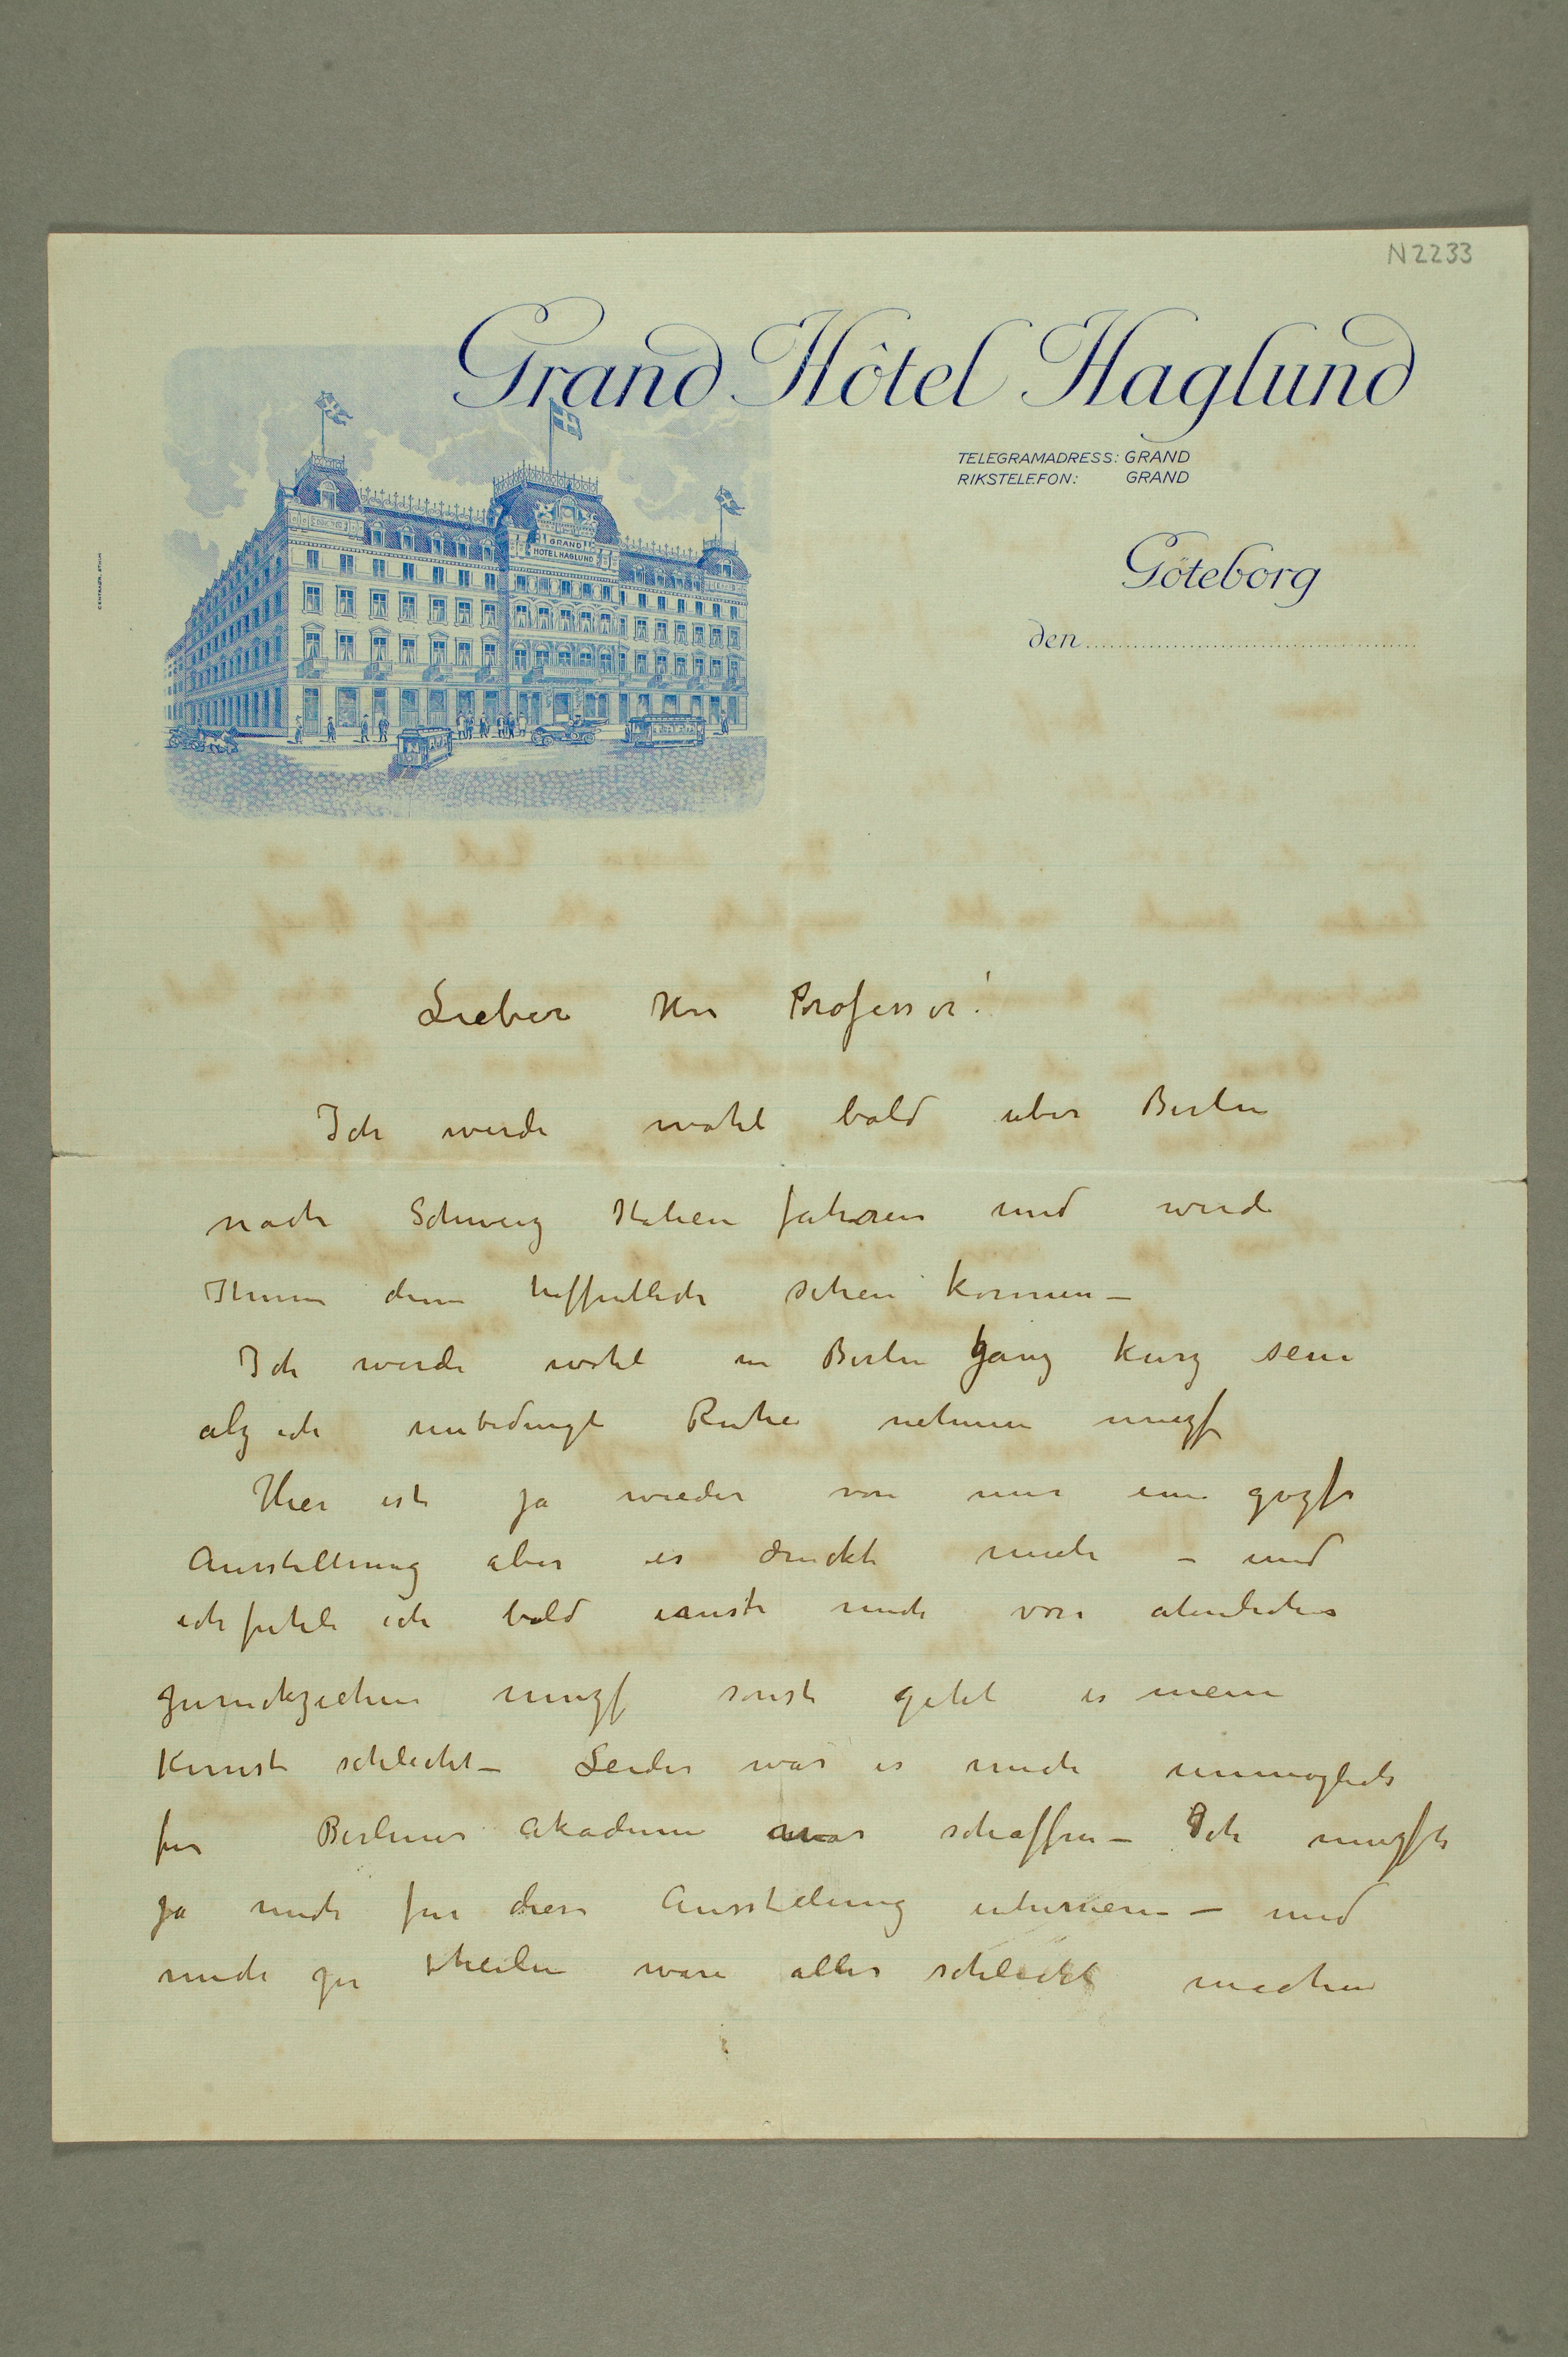 N 2233
Grand Hôtel Haglund
TELEGRAMADRESS: GRAND
RIKSTELEFON: GRAND
GRAND
HOTEL HAGLUND
Göteborg
den
Lieber Herr Professor!
Ich werde wohl bald uber Berlin
nach Schweiz Italien fahren und werde
Ihnen dann hoffentlich sehen konnen –
Ich werde wohl in Berlin ganz kurz sein
alz ich unbedingt Ruhe nehmen muzf
Hier ist ja wieder von mir eine grozfe
Ausstellung aber es druckt mich – und
ich fuhle ich bald mich von ahnliches
zuruckziehen muzf sonst geht es meine
Kunst schlecht – Leider war es mich unmoglich
fur Berliner Akademie was schaffen – Ich muzfte
ja mich fur diese Ausstelung – und
mich zu theilen ware alles schlecht machen